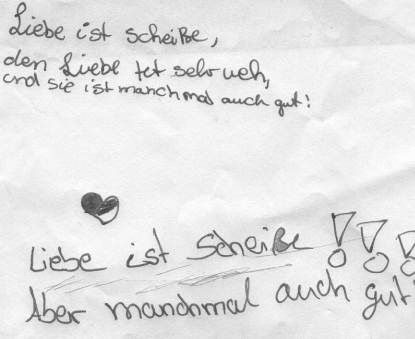 Liebe ist scheiße,
den Liebe tut sehr weh,
und sie ist manchmal auch gut!
Liebe ist Scheiße !!!
Aber manchmal auch gut!